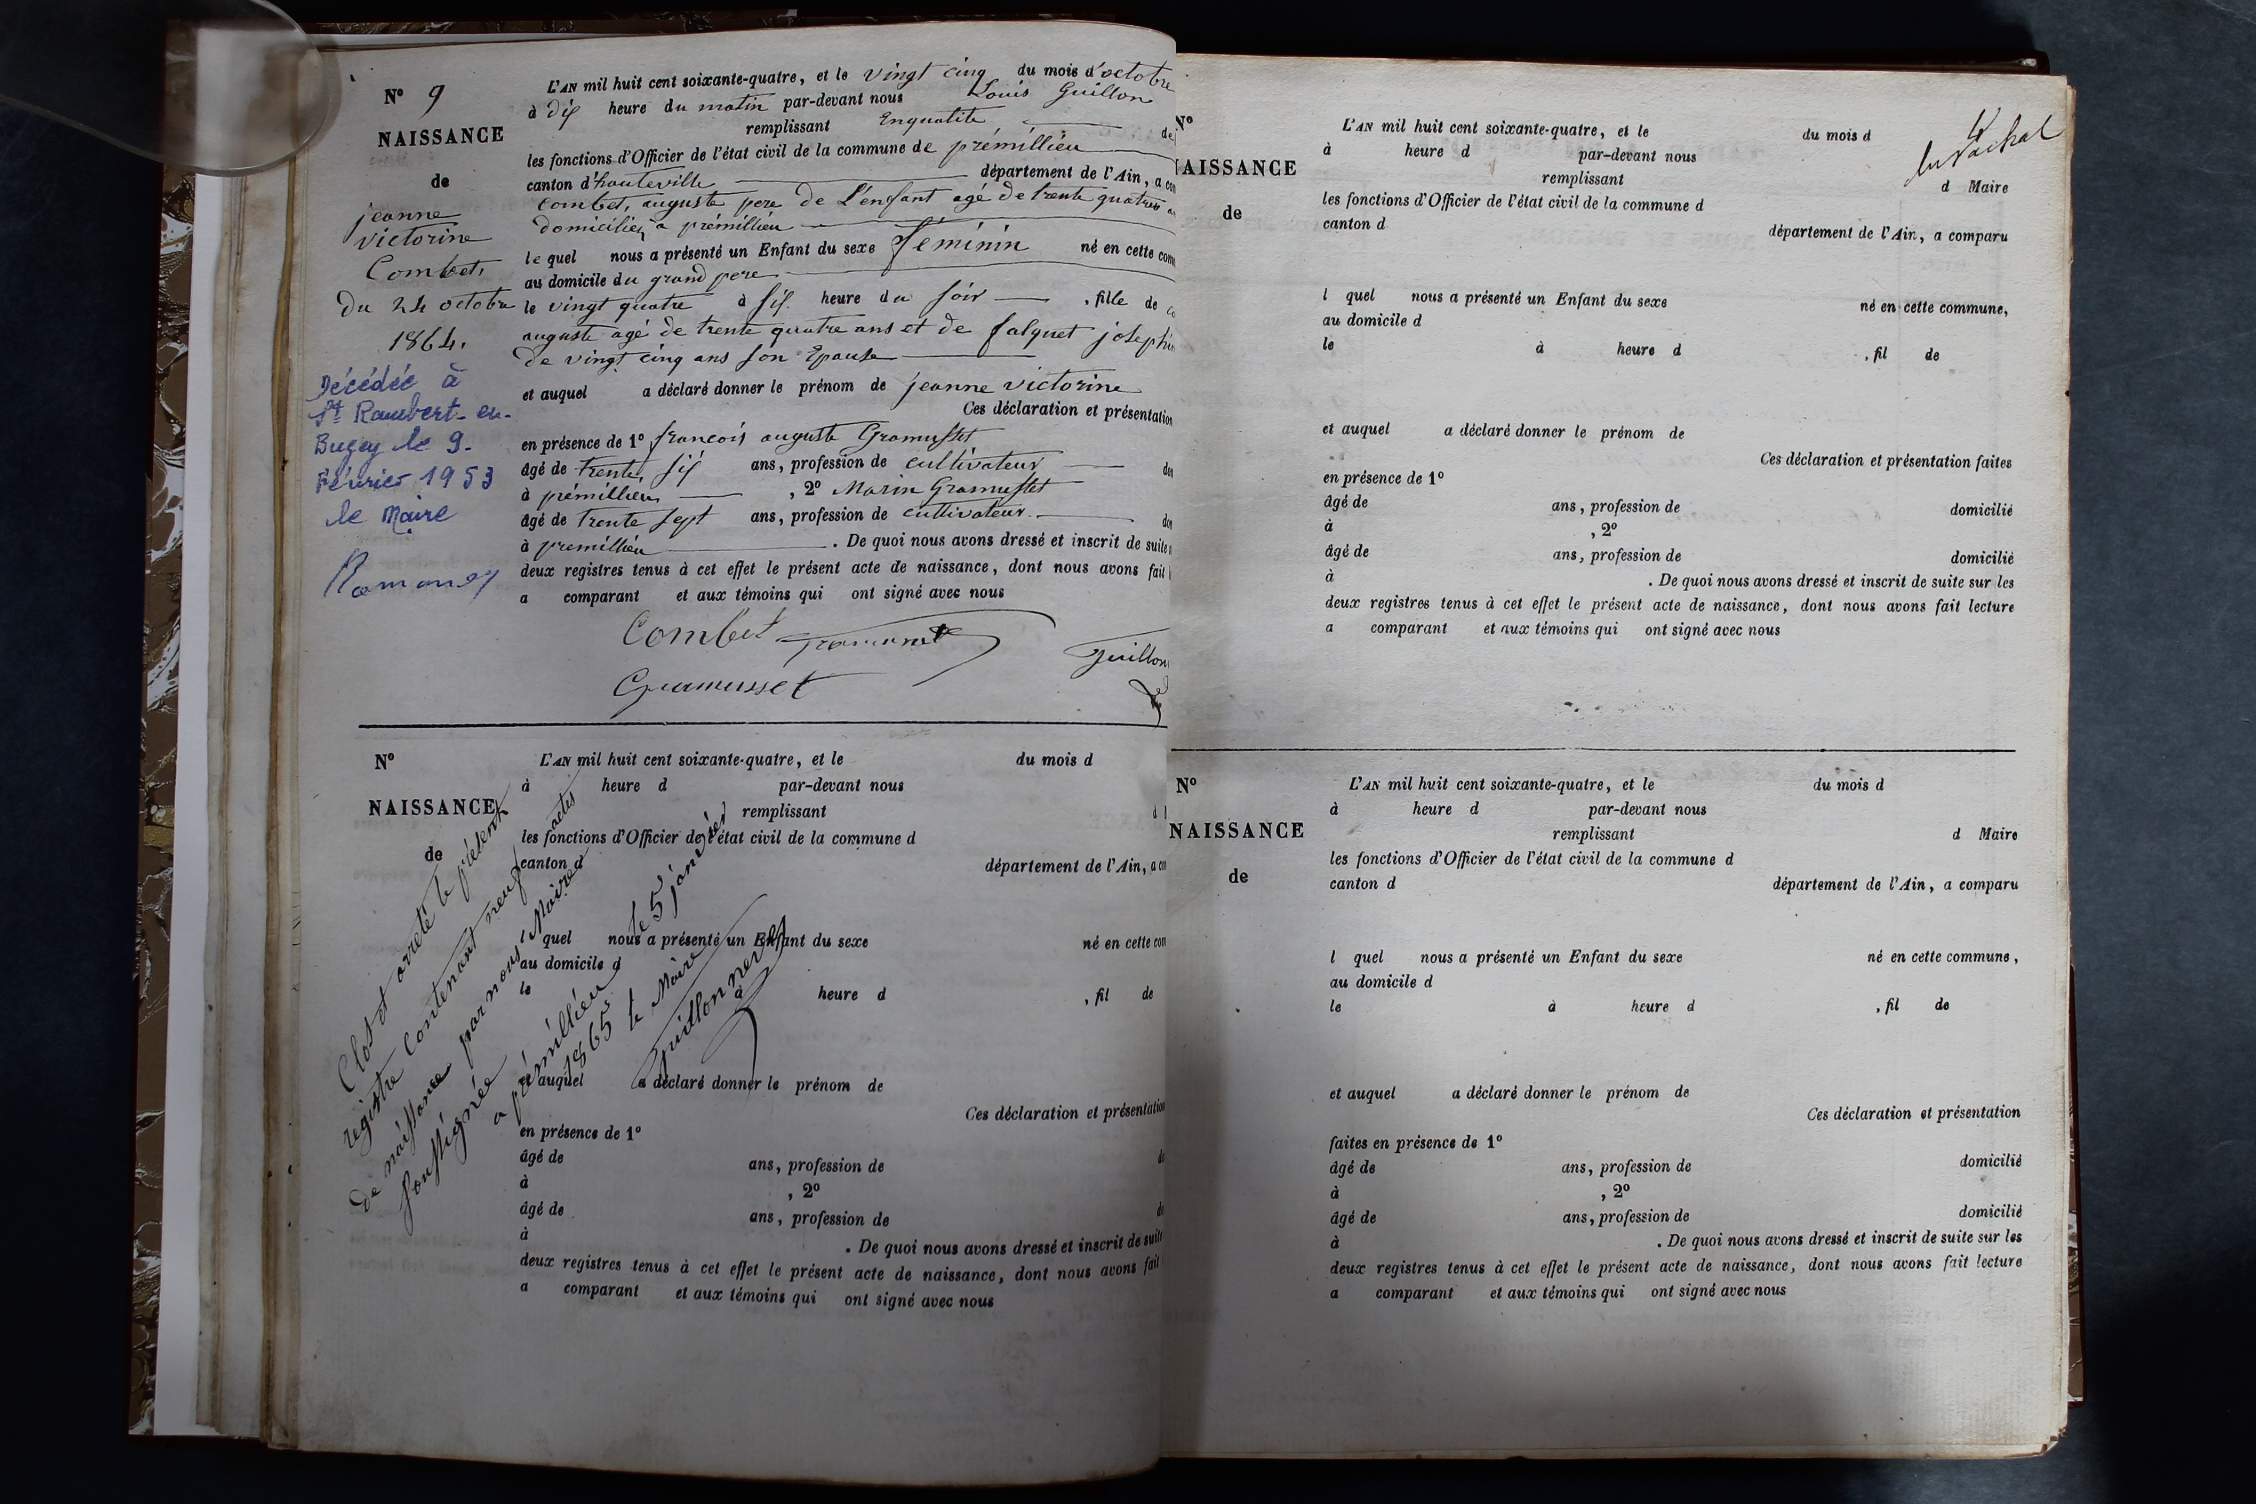 N° 9
NAISSANCE
de
jeanne
victorine
Combet,
du 24 octobre
1864.
Décédée à
St Rambert-en-
Bugey le 9.
Février 1953
le Maire
L'AN mil huit cent soixante-quatre, et le vingt cinq du mois d'octobre
à dix heure du matin par-devant nous Louis Guillon
remplissant Enqualité de
les fonctions d'Officier de l'état civil de la commune de prémillieu
canton d'hauteville département de l'Ain, a com
Combet, auguste pere de L'enfant agé de trente quatre
domicilié, a prémillieu
le quel nous a présenté un Enfant du sexe féminin né en cette com
au domicile du grand pere
le vingt quatre à six heure du soir , fille de
auguste agé de trente quatre ans et de falquet josephi
de vingt cinq ans son Epouse
et auquel a déclaré donner le prénom de jeanne victorine
Ces déclaration et présentation
en présence de 1° francois auguste Gramusset
âgé de trente six ans, profession de cultivateur do
à prémillieu , 2° Marin Gramusset
âgé de trente sept ans, profession de cultivateur. do
à premillieu . De quoi nous avons dressé et inscrit de suite
deux registres tenus à cet effet le présent acte de naissance, dont nous avons fait
a comparant et aux témoins qui ont signé avec nous
Combet
Guillon
Gramusset
N°
NAISSANCE
de
L'AN mil huit cent soixante-quatre, et le du mois d
à heure d par-devant nous
remplissant d
les fonctions d'Officier de l'état civil de la commune d
canton d département de l'Ain, a co
l quel nous a présenté un Enfant du sexe né en cette com
au domicile d
le à heure d , fil de
et auquel a déclaré donner le prénom de
Ces déclaration et présentation
en présence de 1°
âgé de ans, profession de do
à , 2°
âgé de ans, profession de do
à . De quoi nous avons dressé et inscrit de suite
deux registres tenus à cet effet le présent acte de naissance, dont nous avons fait
a comparant et aux témoins qui ont signé avec nous
Clos et arreté le présent
registre Contenant neuf actes
de naissance par nous Maire
soussignée
a prémillieu le 5 janvier
1865 le Maire
N°
NAISSANCE
de
L'AN mil huit cent soixante-quatre, et le du mois d
à heure d par-devant nous
remplissant d Maire
les fonctions d'Officier de l'état civil de la commune d
canton d département de l'Ain, a comparu
l quel nous a présenté un Enfant du sexe né en cette commune,
au domicile d
le à heure d , fil de
et auquel a déclaré donner le prénom de
Ces déclaration et présentation faites
en présence de 1°
âgé de ans, profession de domicilié
à , 2°
âgé de ans, profession de domicilié
à . De quoi nous avons dressé et inscrit de suite sur les
deux registres tenus à cet effet le présent acte de naissance, dont nous avons fait lecture
a comparant et aux témoins qui ont signé avec nous
N°
NAISSANCE
de
L'AN mil huit cent soixante-quatre, et le du mois d
à heure d par-devant nous
remplissant d Maire
les fonctions d'Officier de l'état civil de la commune d
canton d département de l'Ain, a comparu
l quel nous a présenté un Enfant du sexe né en cette commune,
au domicile d
le à heure d , fil de
et auquel a déclaré donner le prénom de
Ces déclaration et présentation
faites en présence de 1°
âgé de ans, profession de domicilié
à , 2°
âgé de ans, profession de domicilié
à . De quoi nous avons dressé et inscrit de suite sur les
deux registres tenus à cet effet le présent acte de naissance, dont nous avons fait lecture
a comparant et aux témoins qui ont signé avec nous